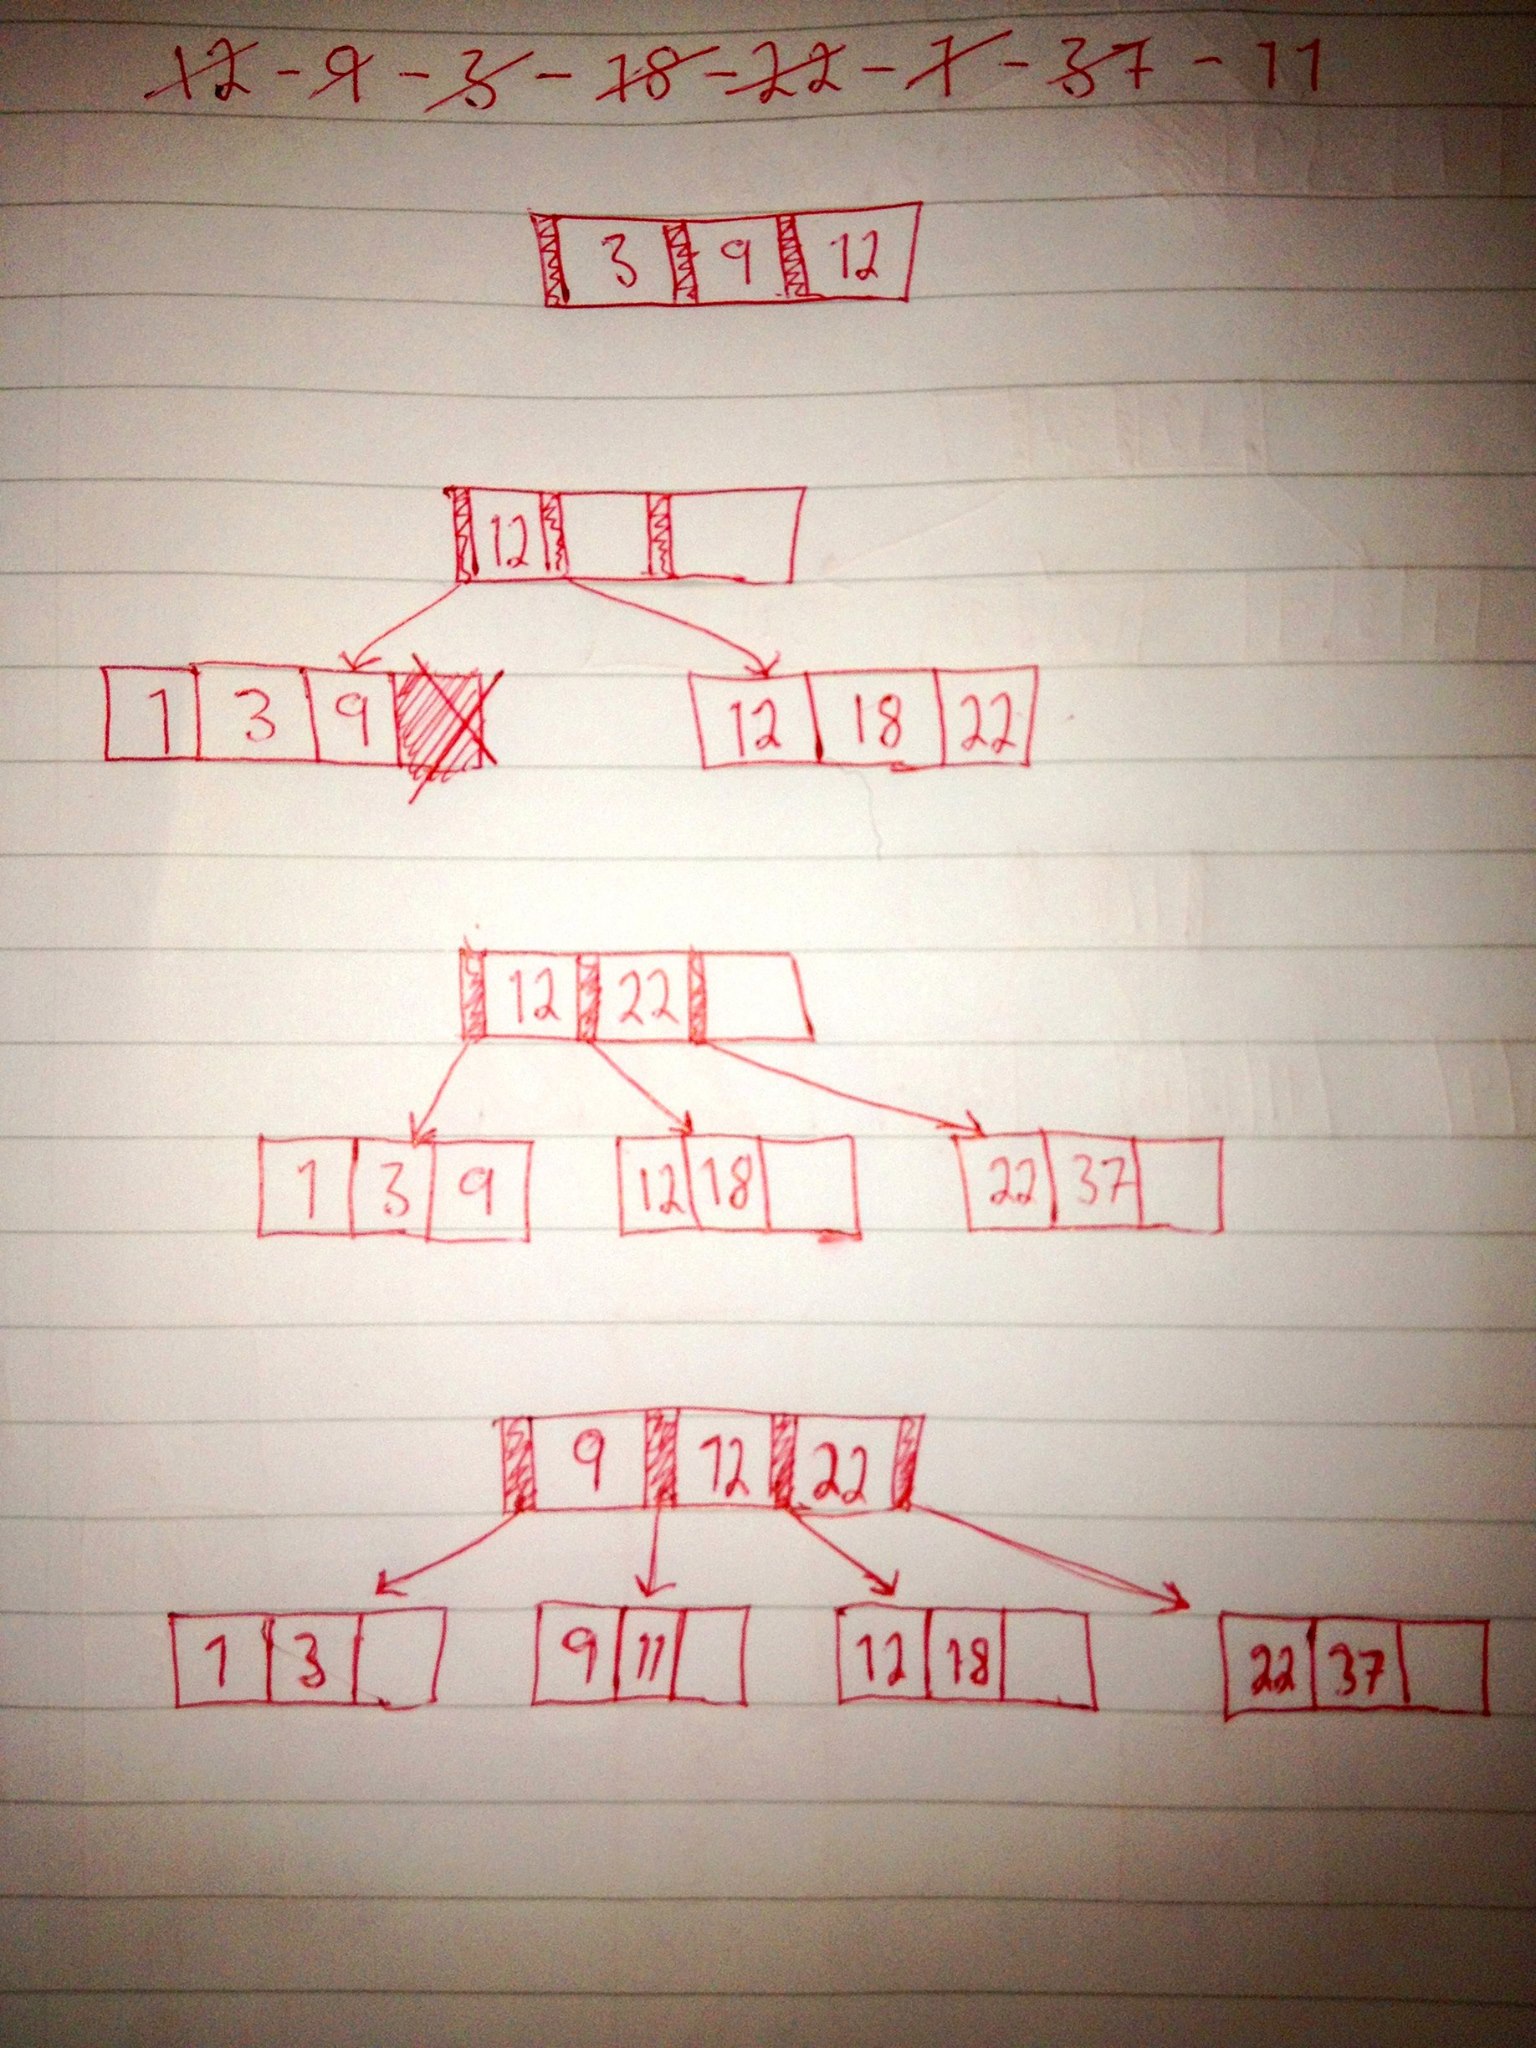 12 - 9 - 3 - 18 - 22 - 1 - 37 - 11
3 9 12
12
1 3 9
12 18 22
12 22
1 3 9
12 18
22 37
9 12 22
1 3
9 11
12 18
22 37